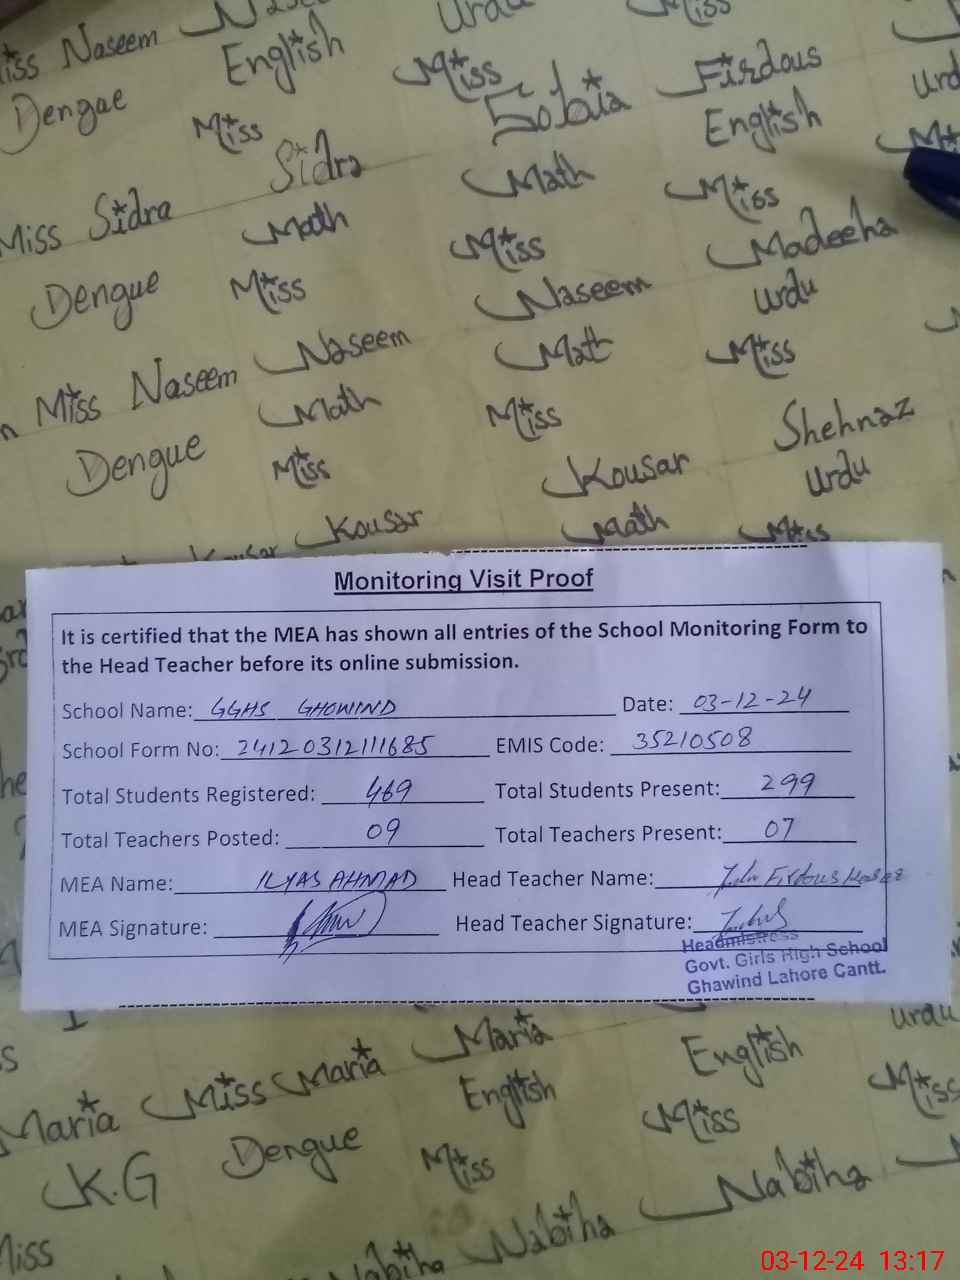 iss Naseem
Urdu
Miss
Dengue
English
Miss
Firdous
Urd
Miss
Sobia
English
Miss Sidra
Sidra
Math
Miss
Math
Miss
Madeeha
Dengue
Miss
Naseem
Urdu
Miss Naseem
Naseem
Math
Miss
Math
Miss
Shehnaz
Dengue
Miss
Kousar
Urdu
Kousar
Math
Miss
Monitoring Visit Proof
It is certified that the MEA has shown all entries of the School Monitoring Form to
the Head Teacher before its online submission.
School Name: GGHS GHOWIND Date: 03-12-24
School Form No: 2412 0312111685 EMIS Code: 35210508
Total Students Registered: 469 Total Students Present: 299
Total Teachers Posted: 09 Total Teachers Present: 07
MEA Name: ILYAS AHMAD Head Teacher Name: Firdous
MEA Signature: Head Teacher Signature:
Headmistress
Govt. Girls High School
Ghawind Lahore Cantt.
Maria
English
Urdu
Maria Miss Maria
English
Miss
Miss
K.G Dengue
Miss
Nabiha
Miss
Nabiha
Nabiha
03-12-24 13:17